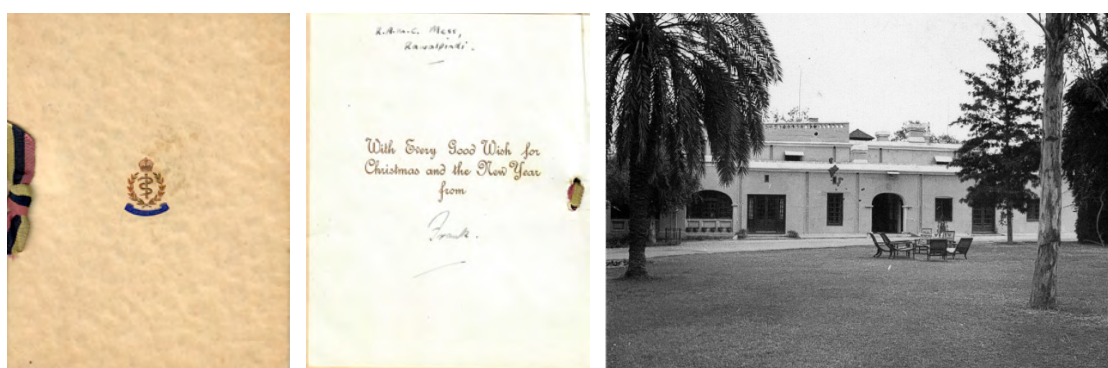 R.A.M.C. Mess,
Rawalpindi.
With Every Good Wish for
Christmas and the New Year
from
Frank.